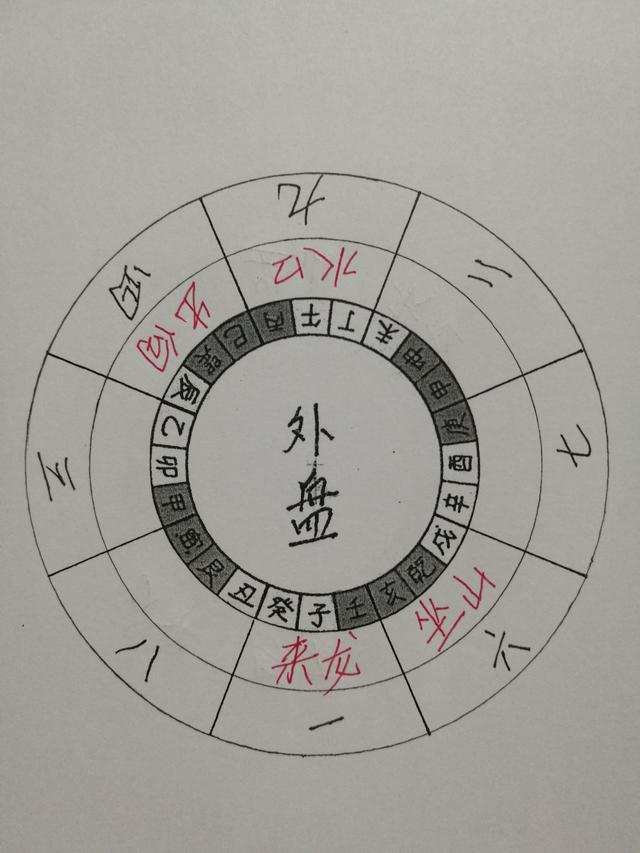 外
盘
九
二
七
六
一
八
三
四
水口
坐山
来龙
出向
午 丁 未 坤 申 庚 酉 辛 戌 乾 亥 壬 子 癸 丑 艮 寅 甲 卯 乙 辰 巽 巳 丙